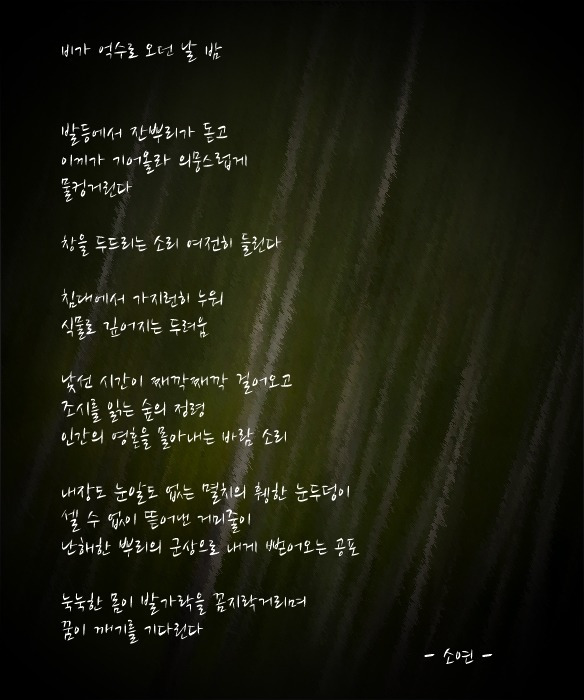 비가 억수로 오던 날 밤
발등에서 잔뿌리가 돋고
이끼가 기어올라 의뭉스럽게
물컹거린다
창을 두드리는 소리 여전히 들린다
침대에서 가지런히 누워
식물로 깊어지는 두려움
낯선 시간이 째깍째깍 걸어오고
조시를 읽는 숲의 정령
인간의 영혼을 몰아내는 바람 소리
내장도 눈알도 없는 멸치의 휑한 눈두덩이
셀 수 없이 뜯어낸 거미줄이
난해한 뿌리의 군상으로 내게 뻗어오는 공포
눅눅한 몸이 발가락을 꼼지락거리며
꿈이 깨기를 기다린다
- 소연 -